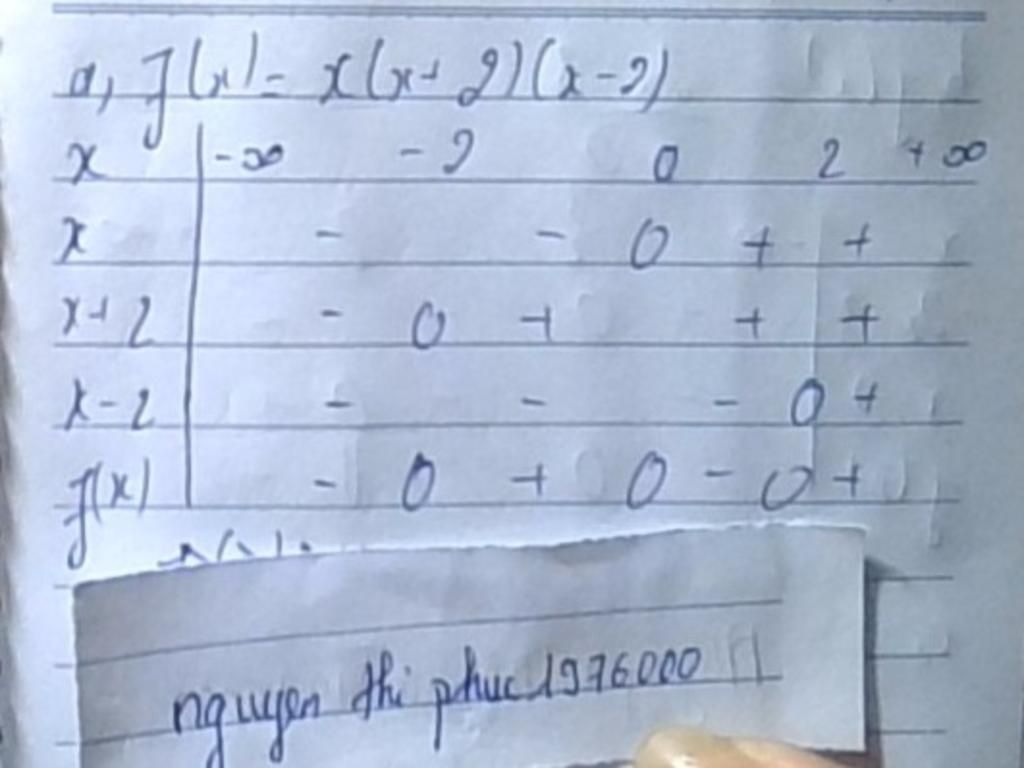 a, f(x) = x(x+2)(x-2)
x -∞ -2 0 2 +∞
x - - 0 + +
x+2 - 0 + + +
x-2 - - - 0 +
f(x) - 0 + 0 - 0 +
nguyen thi phuc 1976000